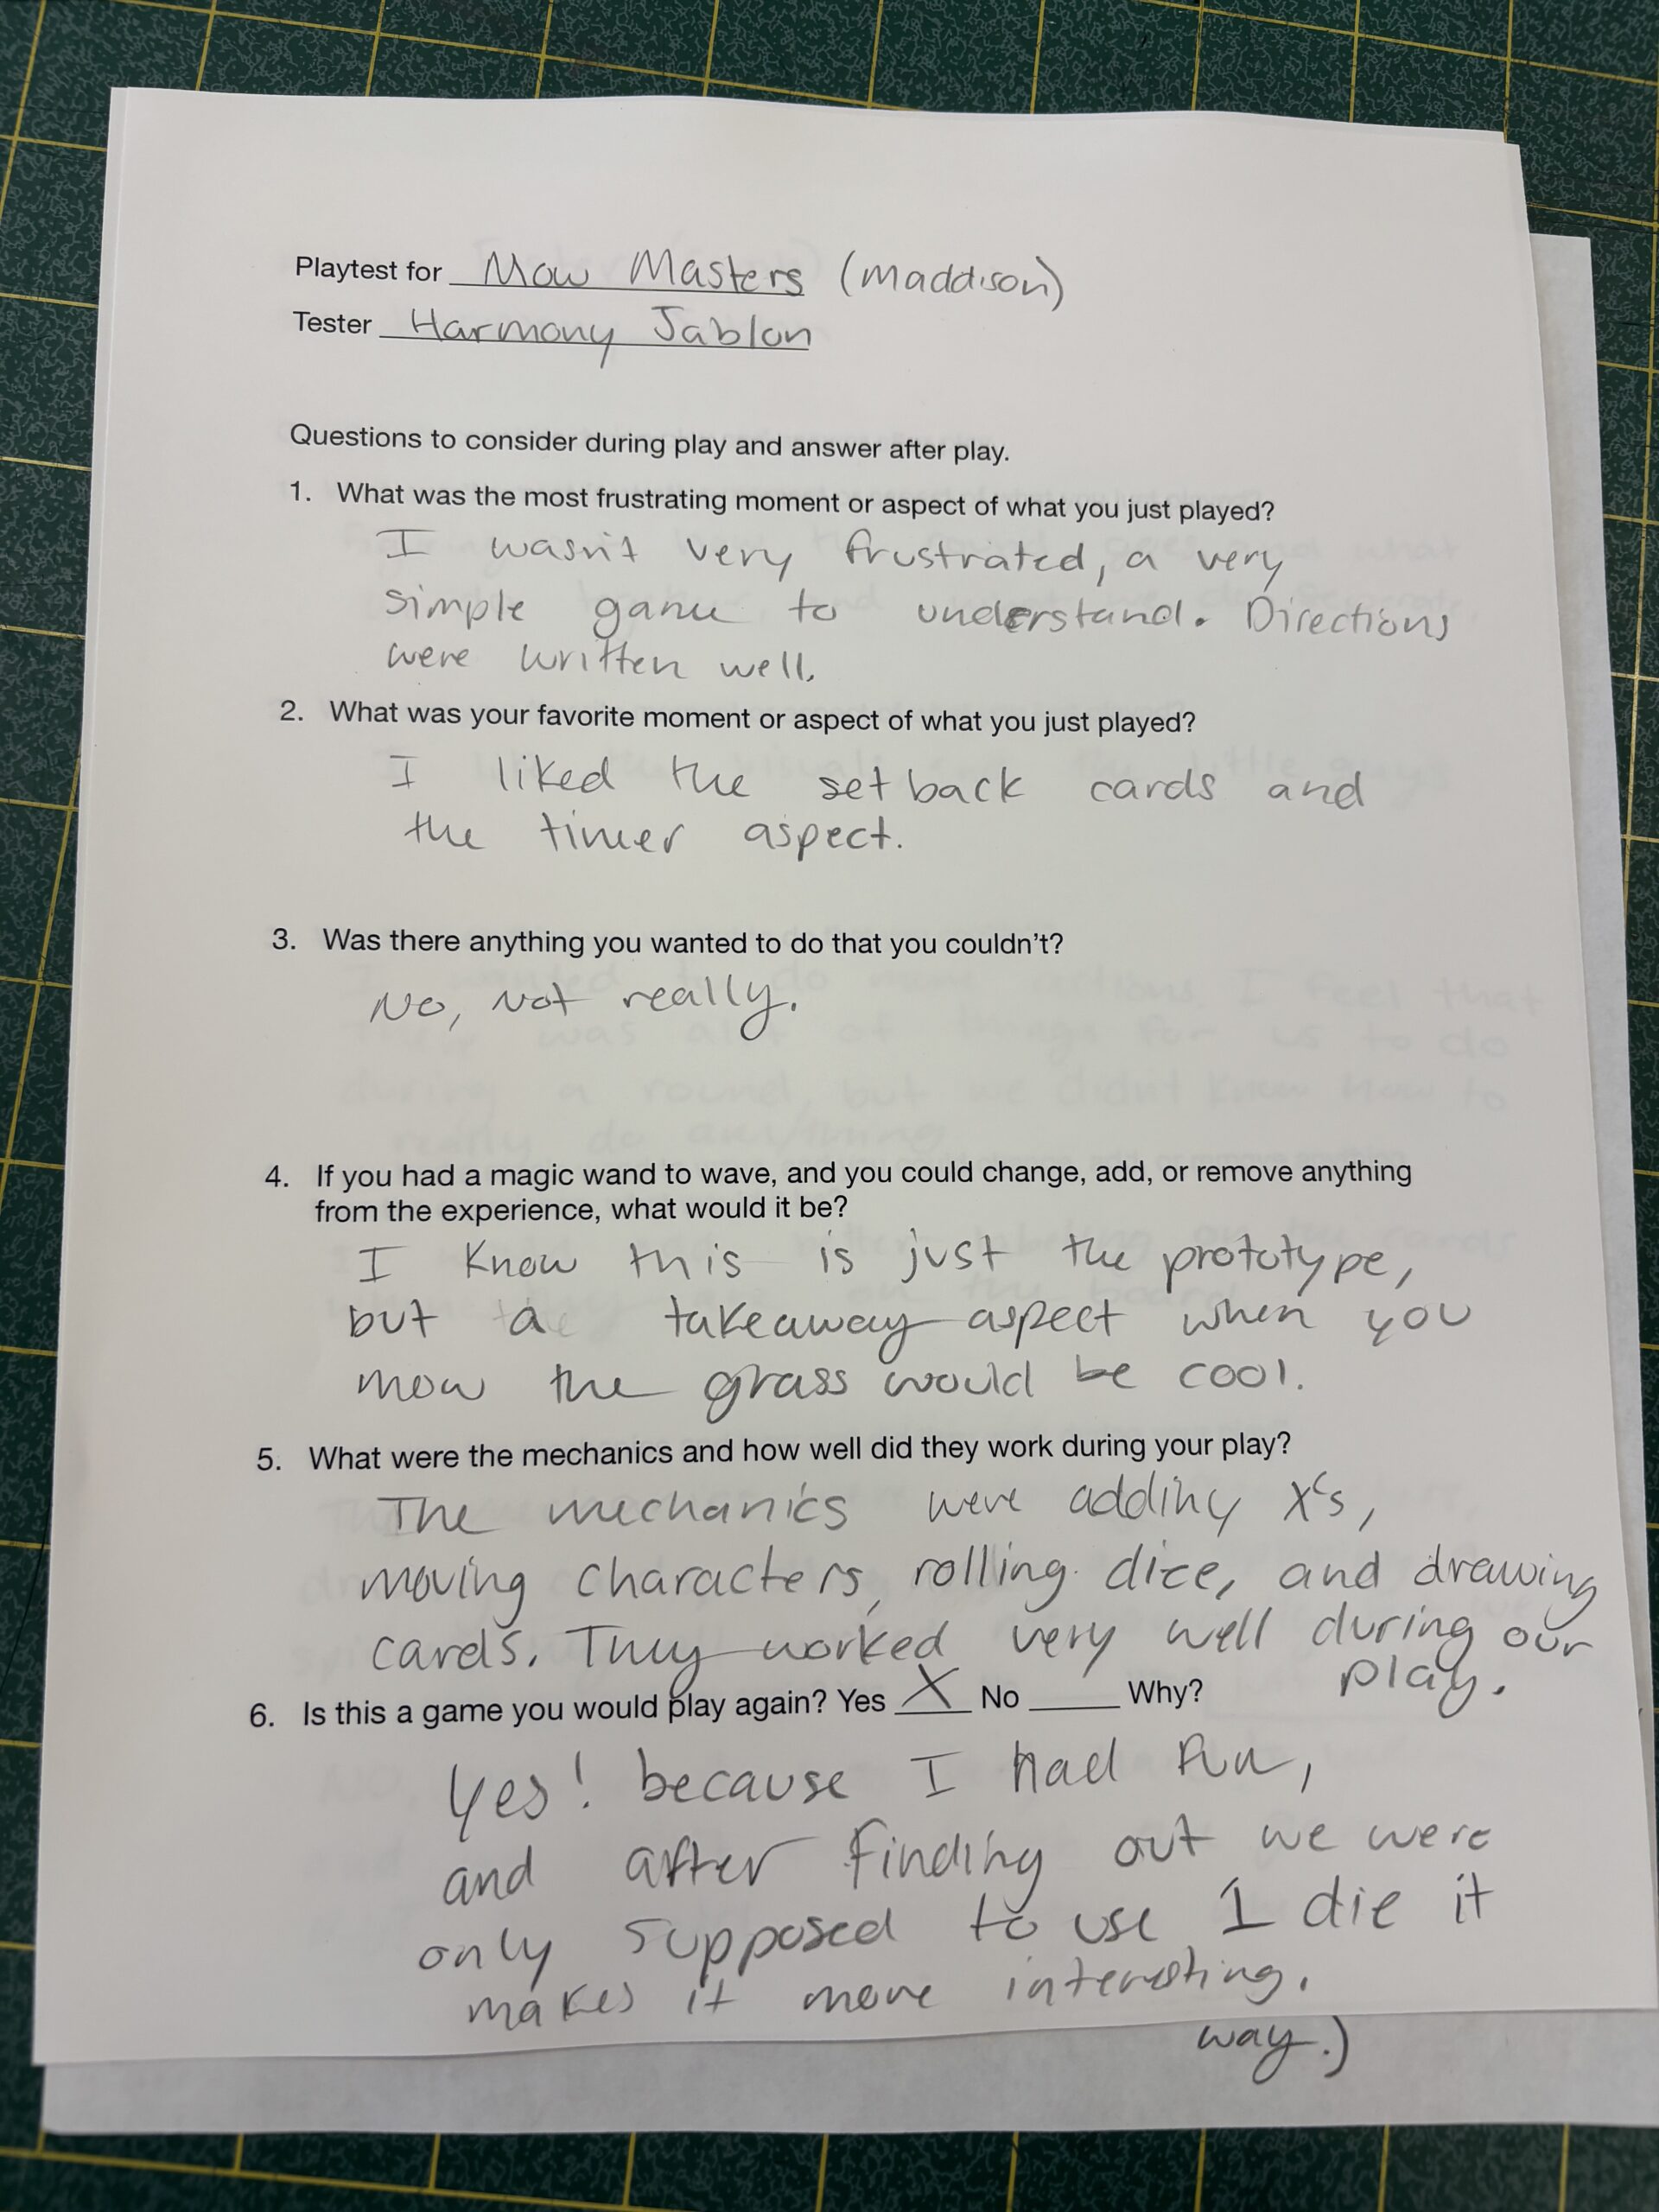 Playtest for Mow Masters (Maddison)
Tester Harmony Jablon
Questions to consider during play and answer after play.
1. What was the most frustrating moment or aspect of what you just played?
I wasn't very frustrated, a very
simple game to understand. Directions
were written well.
2. What was your favorite moment or aspect of what you just played?
I liked the setback cards and
the timer aspect.
3. Was there anything you wanted to do that you couldn't?
No, not really.
4. If you had a magic wand to wave, and you could change, add, or remove anything
from the experience, what would it be?
I know this is just the prototype,
but a takeaway aspect when you
mow the grass would be cool.
5. What were the mechanics and how well did they work during your play?
The mechanics were adding X's,
moving characters, rolling dice, and drawing
cards. They worked very well during our
play.
6. Is this a game you would play again? Yes X No ____ Why?
Yes! because I had fun,
and after finding out we were
only supposed to use 1 die it
makes it more interesting.
way.)